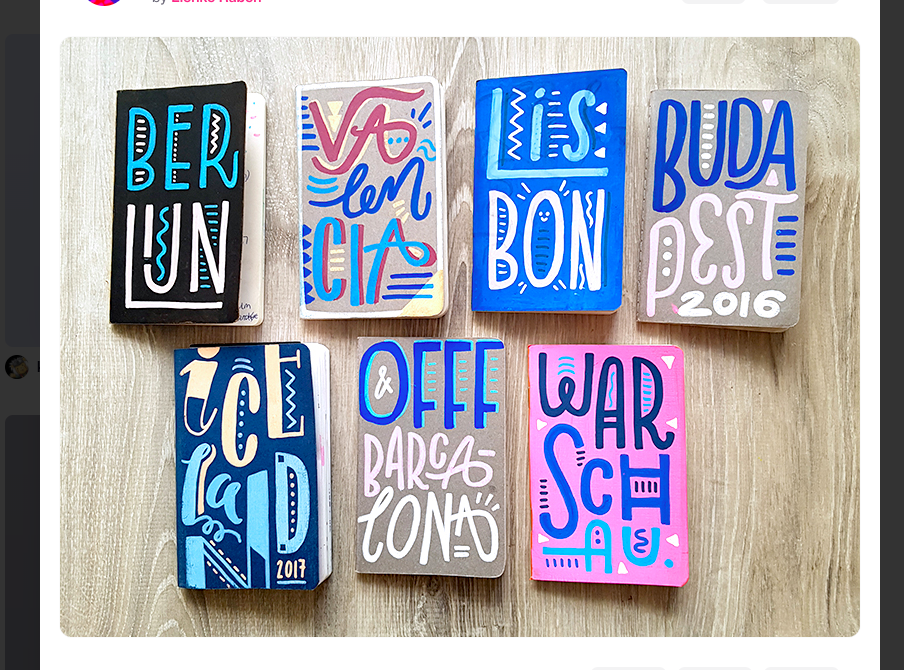 by
BER
LIJN
VA
len
CIA
LiS
BON
BUDA
PEST
2016
iCE
laND
2017
& OFFF
BARCA-
LONA
WAR
SCH
AU.